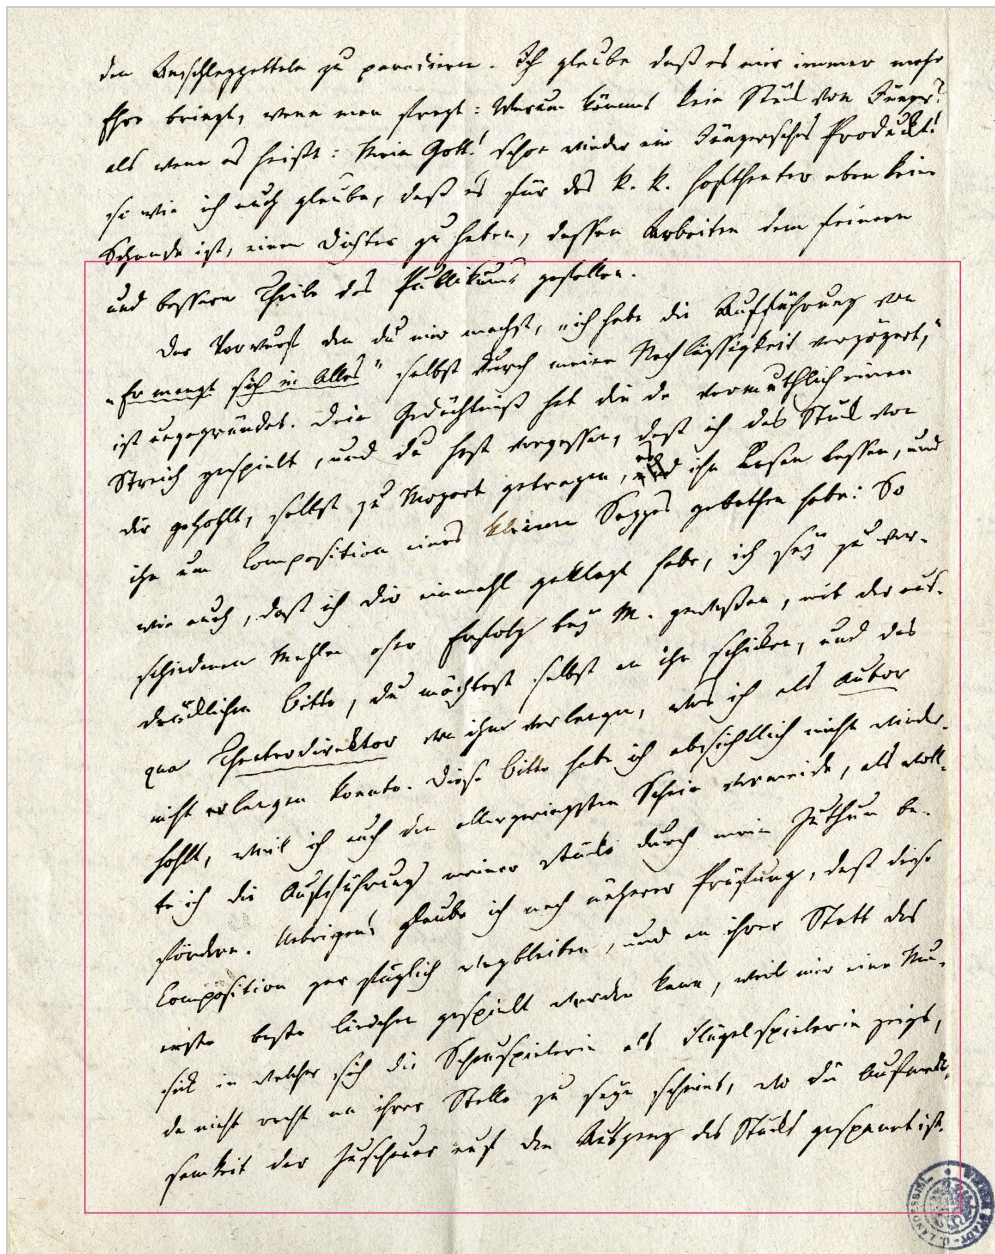 den Anschlagzetteln zu paradiren. Ich glaube daß es mir immer mehr
Ehre bringt, wenn man fragt: Warum kömmt kein Stück von Jünger?
als wenn es heißt: Mein Gott! schon wieder ein Jüngersches Produckt!
so wie ich auch glaube, daß es für das k. k. Hoftheater eben keine
Schande ist, einen Dichter zu haben, dessen Arbeiten dem feinern
und bessern Theile des Publikums gefallen.
Der Vorwurf den du mir machst, „ich habe die Aufführung von
„Er mengt sich in Alles" selbst durch meine Nachlässigkeit verzögert,"
ist ungegründet. Dein Gedächtniß hat dir da vermuthlich einen
Streich gespielt, und du hast vergessen, daß ich das Stück von
dir gehohlt, selbst zu Mozart getragen, es ihn lesen lassen, und
ihn um Composition eines kleinen Satzes gebethen habe: So
wie auch, daß ich dir einmahl geklagt habe, ich sey zu ver-
schiedenen Mahlen ohne Erfolg bey M. gewesen, mit der aus-
drücklichen Bitte, du möchtest selbst an ihn schicken, und das
qua Theaterdirektor von ihm verlangen, was ich als Autor
nicht erlangen konnte. Diese Bitte habe ich absichtlich nicht wieder-
hohlt, weil ich auch den allergeringsten Schein vermeide, als woll-
te ich die Aufführung meiner Stücke durch mein Zuthun be-
fördern. Uebrigens glaube ich nach näherer Prüfung, daß diese
Composition gar füglich wegbleiben, und an ihrer Statt das
erste beste Liedchen gespielt werden kann, weil mir eine Mu-
sik in welcher sich die Schauspielerin als Flügelspielerin zeigt,
da nicht recht an ihrer Stelle zu seyn scheint, wo die Aufmerk-
samkeit der Zuschauer auf den Ausgang des Stücks gespannt ist.